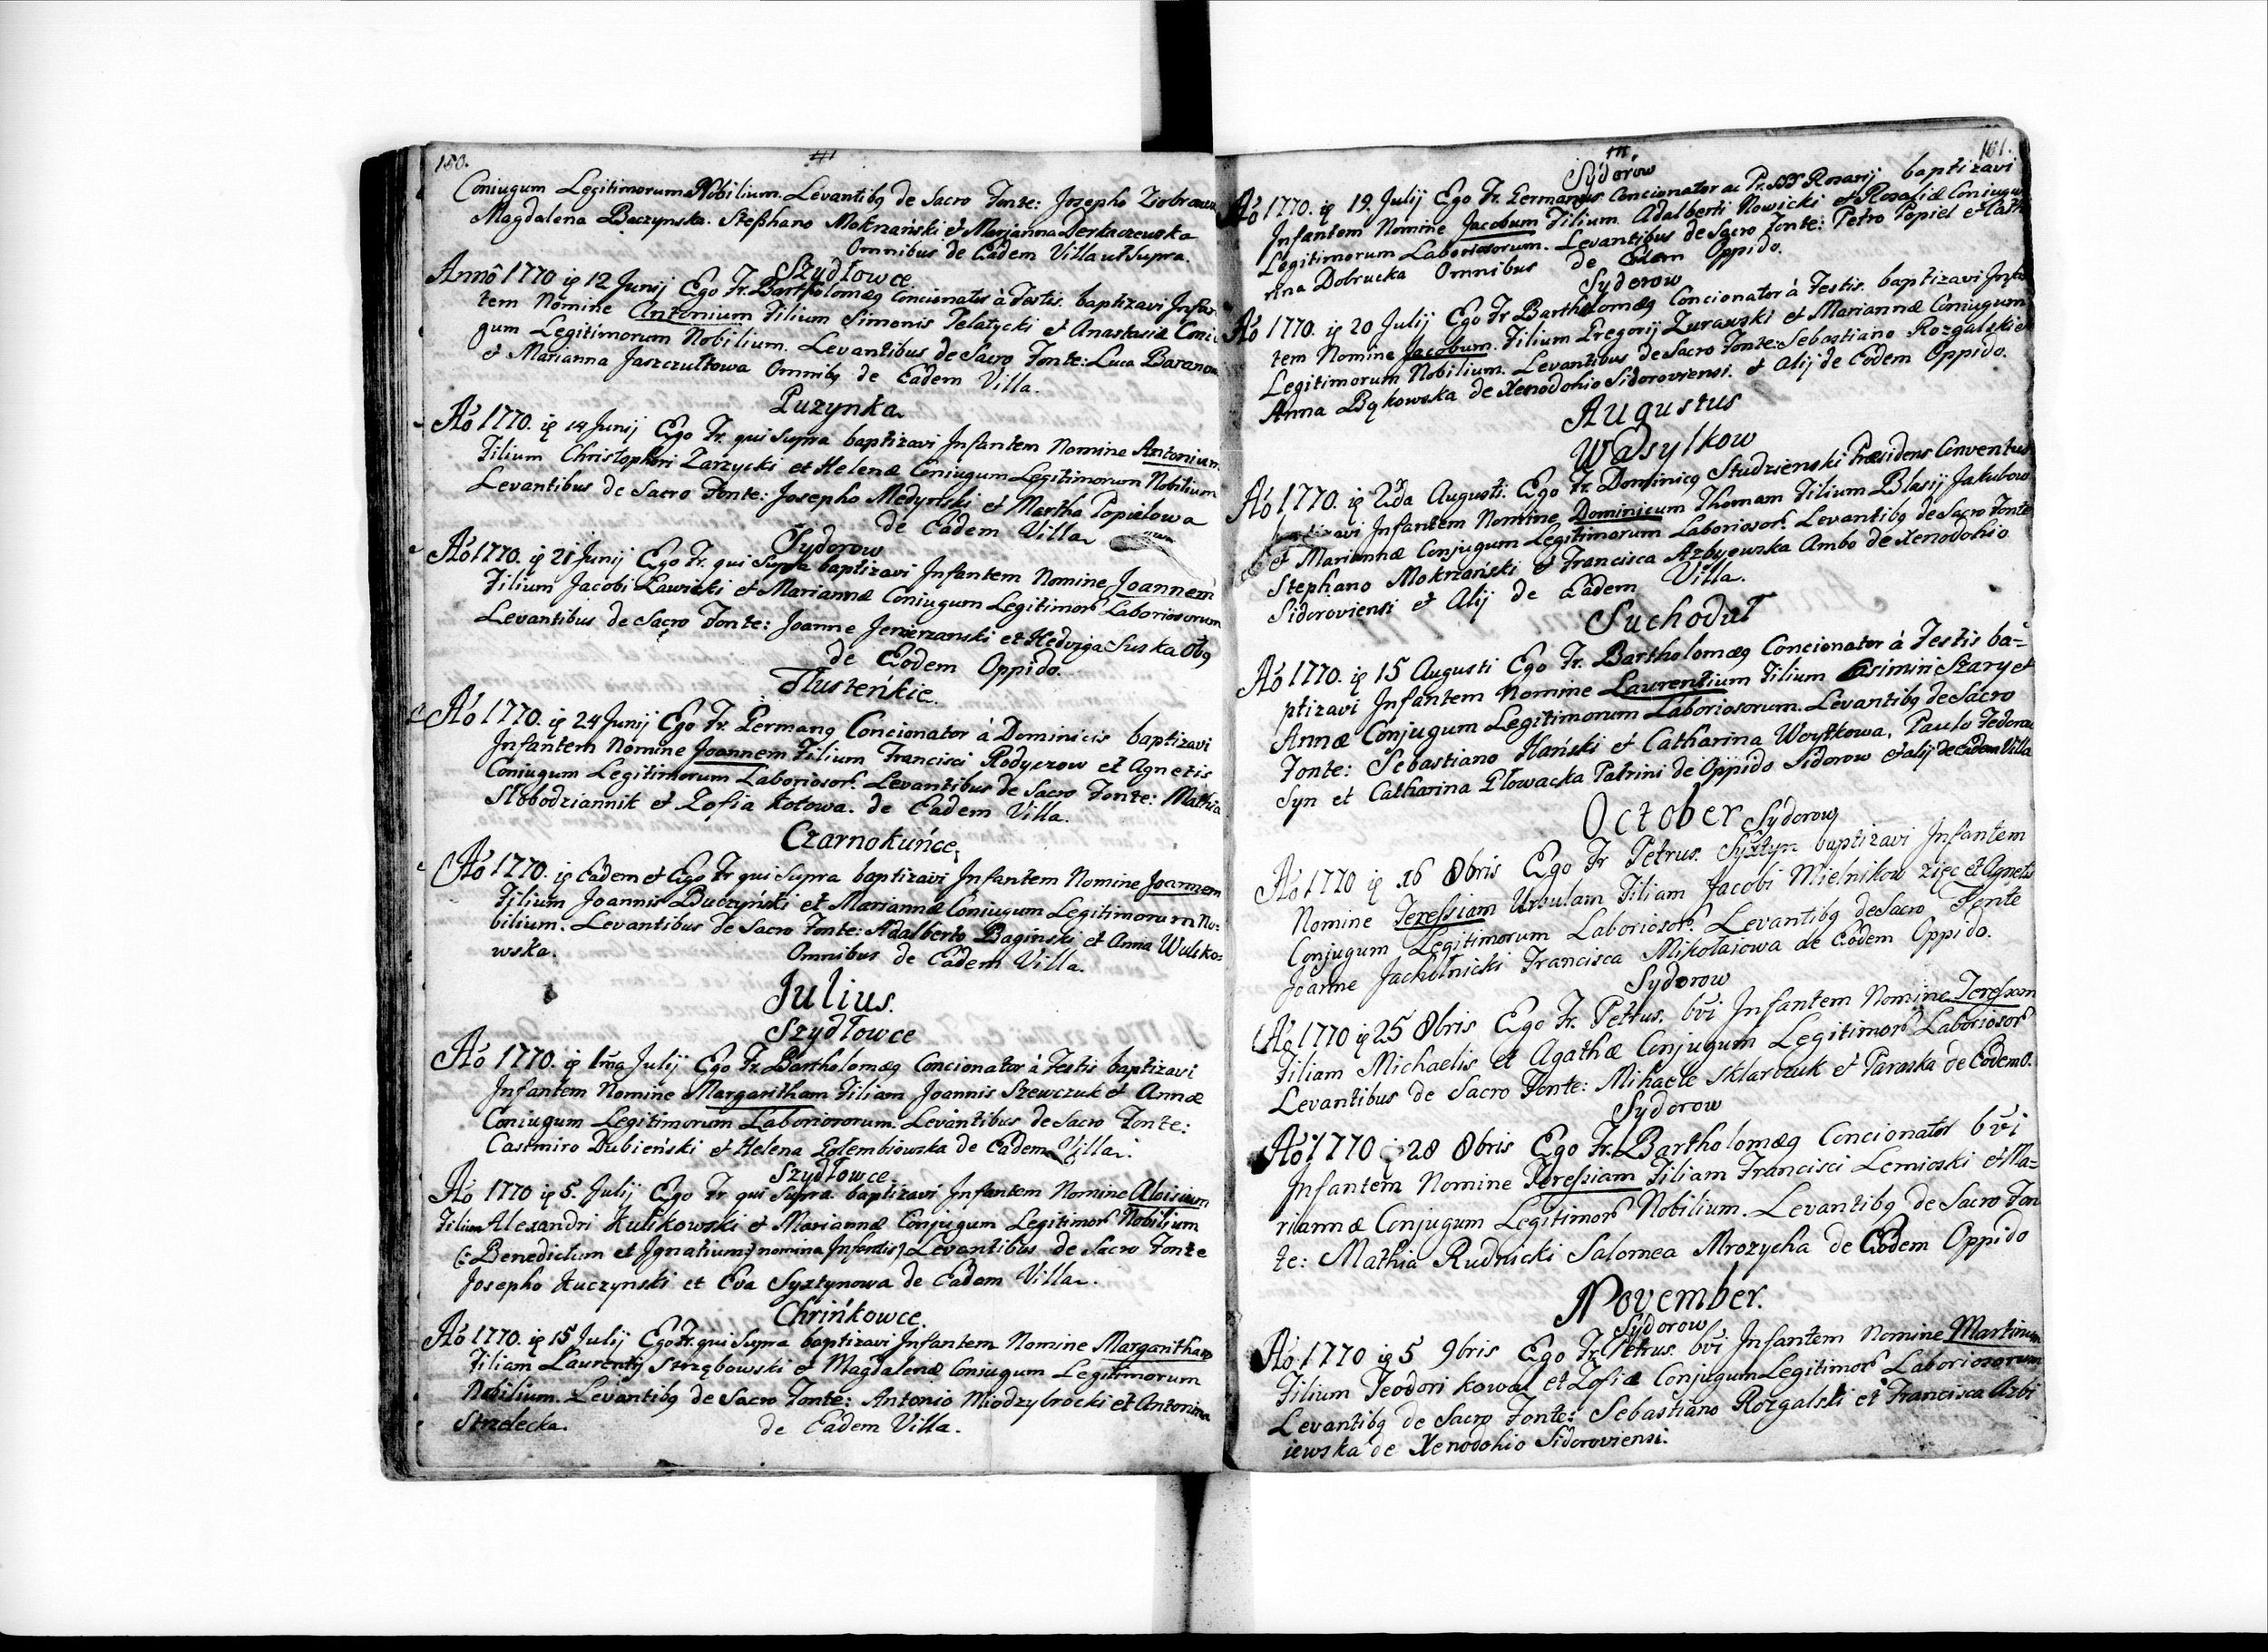 160.
Coniugum Legitimorum Nobilium. Levantibq de Sacro Fonte: Josepho
Magdalena Baczynska. Stephano Mokrzański et Marjanna Derkaczewska
Omnibus de Eadem Villa ut Supra.
Szydłowce.
Annô 1770 ię 12 Junij Ego Fr. Bartholomæq Concionator à Festis. baptizavi Infan
tem Nomine Antonium Filium Simonis Telatycki et Anastasiæ Coniu
gum Legitimorum Nobilium. Levantibus de Sacro Fonte: Luca
et Marianna Jaszczultowa Omnibq de Eadem Villa.
Puzynka.
Aô 1770. ię 14 Junij Ego Fr. qui Supra baptizavi Infantem Nomine Antonium
Filium Christophori Zarzycki et Helenæ Coniugum Legitimorum Nobilium
Levantibus de Sacro Fonte: Josepho Medynski et Martha Popielowa
de Eadem Villa.
Sydorow
Aô 1770. ię 21 Junij Ego Fr. qui Supra baptizavi Infantem Nomine Joannem
Filium Jacobi Ławicki et Mariannæ Coniugum Legitimor Laboriosorum
Levantibus de Sacro Fonte: Joanne Jezierzanski et Hedviga Suska
de Eodem Oppido.
Tlusteńkie.
Aô 1770. ię 24 Junij Ego Fr. Germanq Concionator à Dominicis baptizavi
Infantem Nomine Joannem Filium Francisci Rodyczow et Agnetis
Coniugum Legitimorum Laboriosor. Levantibus de Sacro Fonte: Mathia
Słobodziannik et Zofia kotowa. de Eadem Villa.
Czarnokuńce.
Aô 1770. ię Eadem et Ego Fr qui Supra baptizavi Infantem Nomine Joannem
Filium Joannis Buczyński et Mariannæ Coniugum Legitimorum No=
bilium. Levantibus de Sacro Fonte: Adalberto Baginski et Anna Wulko=
wska. Omnibus de Eadem Villa.
Julius.
Szydłowce
Aô 1770. ię 1ma Julij Ego Fr. Bartholomæq Concionator à Festis baptizavi
Infantem Nomine Margaritham Filiam Joannis Szewczuk et Annæ
Coniugum Legitimorum Laboriosorum. Levantibus de Sacro Fonte:
Casimiro Dubieński et Helena Golembiowska de Eadem Villa.
Szydłowce.
Aô 1770 ię 5. Julij Ego Fr qui Supra baptizavi Infantem Nomine Aloisium
Filium Alexandri Kulikowski et Mariannæ Conjugum Legitimor Nobilium
(: Benedictum et Ignatium: nomina Infantis) Levantibus de Sacro Fonte
Josepho Kuczynski et Eva Syxtynowa de Eadem Villa.
Chrińkowce.
Aô 1770. ię 15 Julij Ego Fr. qui Supra baptizavi Infantem Nomine Margaritham
Filiam Laurentij Strzębowski et Magdalenæ Coniugum Legitimorum
Nobilium. Levantibq de Sacro Fonte: Antonio Miodzybrocki et Antonina
Strzelecka. de Eadem Villa.
161.
Sydorow
Aô 1770. ię 19. Julij Ego Fr. Germanus Concionator ac Pr. SS Rosarij baptizavi
Infantem Nomine Jacobum Filium Adalberti Nowicki et Rosaliæ Coniugum
Legitimorum Laboriosorum. Levantibus de Sacro Fonte: Petro Popiel et Cathe
rina Dobrucka Omnibus de Eodem Oppido.
Syderow
Aô 1770. ię 20 Julij Ego Fr Bartholomæq Concionator à Festis. baptizavi Infan
tem Nomine Jacobum. Filium Gregorij Zurawski et Mariannæ Coniugum
Legitimorum Nobilium. Levantibus de Sacro Fonte: Sebastiano Rozgalski et
Anna Bąkowska de Xenodohio Sidoroviensi. et Alij de Eodem Oppido.
Augustus
Wasylkow
Aô 1770. ię 2da Augusti. Ego Fr. Dominicq Studzienski Præsidens Conventus
baptizavi Infantem Nomine Dominicum Thomam Filium Blasij Jakubow
et Mariannæ Conjugum Legitimorum Laboriosor. Levantibq de Sacro Fonte
Stephano Mokrzański et Francisca Arbyewska Ambo de Xenodohio
Sidoroviensi et Alij de Eadem Villa.
Suchoduł
Aô 1770. ię 15 Augusti Ego Fr. Bartholomæq Concionator à Festis ba=
ptizavi Infantem Nomine Laurentium Filium Casimiri Szary et
Annæ Conjugum Legitimorum Laboriosorum. Levantibq de Sacro
Fonte: Sebastiano Hański et Catharina Woytkowa, Paulo Fedorow
Syn et Catharina Głowacka Patrini de Oppido Sidorow et alij de Eadem Villa
October Sydorow
Aô 1770 ię 16 8bris Ego Fr Petrus. Syxtyn baptizavi Infantem
Nomine Teressiam Ursulam Filiam Jacobi Mielnikow zięc et Agnetis
Conjugum Legitimorum Laboriosor. Levantibq de Sacro Fonte
Joanne Jacholnicki Francisca Mikołaiowa de Eodem Oppido.
Sydorow
Aô 1770 ię 25 8bris Ego Fr. Petrus. bvi Infantem Nomine Teressiam
Filiam Michaelis et Agathæ Conjugum Legitimor Laboriosor
Levantibus de Sacro Fonte: Mihaele Sklarczuk et Paraska de Eodem O.
Sydorow
Aô 1770 ię 28 8bris Ego Fr. Bartholomæq Concionator bvi
Infantem Nomine Teressiam Filiam Francisci Lemioski et Ma=
riannæ Conjugum Legitimor Nobilium. Levantibq de Sacro Fon
te: Mathia Rudnicki Salomea Mrozycha de Eodem Oppido
November.
Sydorow
Aô 1770 ię 5 9bris Ego Fr. Petrus. bvi Infantem Nomine Martinum
Filium Teodori Kowal et Zofiæ Conjugum Legitimor Laboriosorum
Levantibq de Sacro Fonte: Sebastiano Rozgalski et Francisca Arbi
iewska de Xenodohio Sidoroviensi.